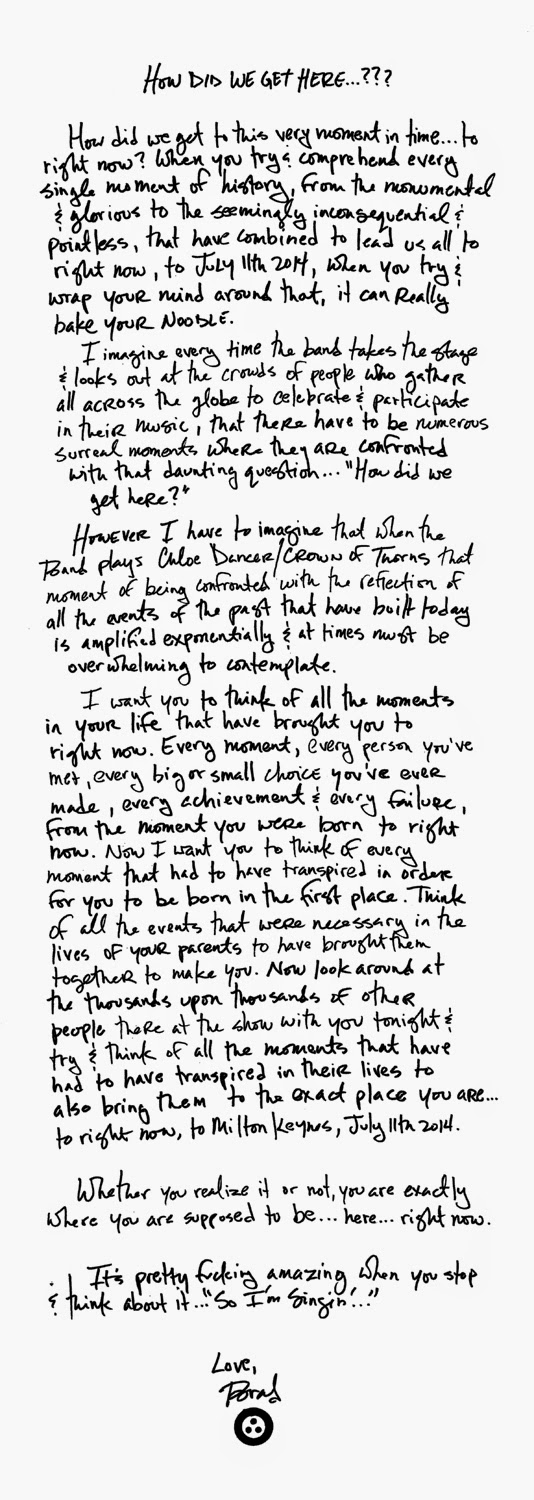 How DID WE GET HERE...???
How did we get to this very moment in time... to
right now? When you try & comprehend every
single moment of history, from the monumental
& glorious to the seemingly inconsequential &
pointless, that have combined to lead us all to
right now, to July 11th 2014, when you try &
wrap your mind around that, it can Really
bake your NOODLE.
I imagine every time the band takes the stage
& looks out at the crowds of people who gather
all across the globe to celebrate & participate
in their music, that there have to be numerous
surreal moments where they are confronted
with that daunting question... "How did we
get here?"
However I have to imagine that when the
Band plays Chloe Dancer/Crown of Thorns that
moment of being confronted with the reflection of
all the events of the past that have built today
is amplified exponentially & at times must be
overwhelming to contemplate.
I want you to think of all the moments
in your life that have brought you to
right now. Every moment, every person you've
met, every big or small choice you've ever
made, every achievement & every failure,
from the moment you were born to right
now. Now I want you to think of every
moment that had to have transpired in order
for you to be born in the first place. Think
of all the events that were necessary in the
lives of your parents to have brought them
together to make you. Now look around at
the thousands upon thousands of other
people there at the show with you tonight &
try & think of all the moments that have
had to have transpired in their lives to
also bring them to the exact place you are...
to right now, to Milton Keynes, July 11th 2014.
Whether you realize it or not, you are exactly
where you are supposed to be... here... right now.
It's pretty fucking amazing when you stop
& think about it... "So I'm Singin'..."
Love,
Brad